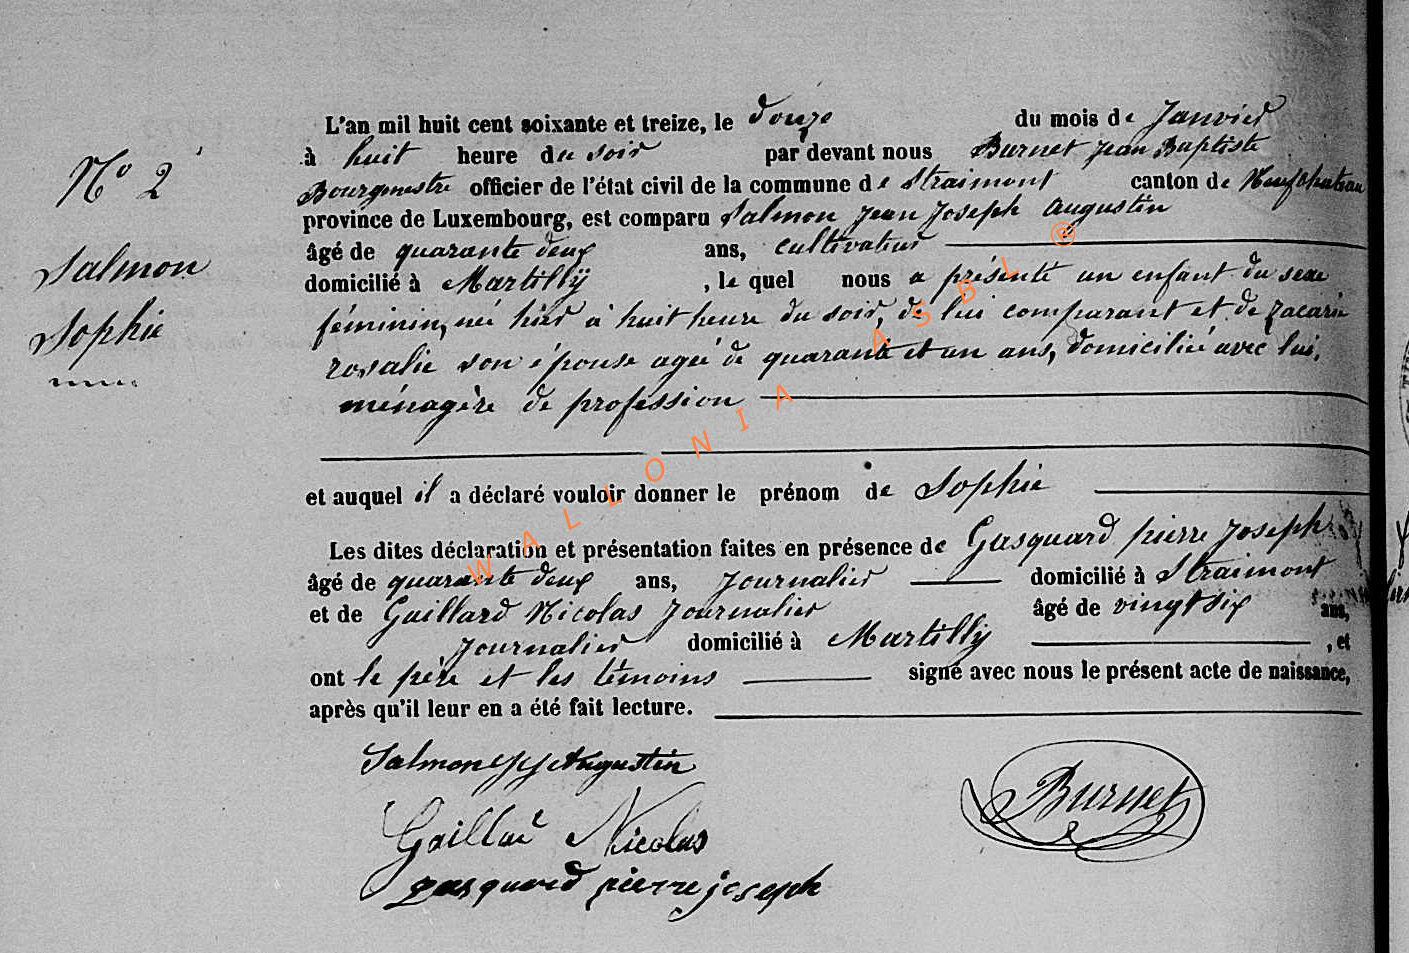 L'an mil huit cent soixante et treize, le douze du mois de Janvier
N° 2
à huit heure du soir par devant nous Burnet Jean Baptiste
Bourgmestre officier de l'état civil de la commune de Straimont canton de Neufchateau
province de Luxembourg, est comparu Salmon Jean Joseph Augustin
Salmon
âgé de quarante deux ans, cultivateur
domicilié à Martilly, le quel nous a présenté un enfant du sexe
Sophie
féminin, née hier à huit heure du soir, de lui comparant et de Zacarie
rosalie son épouse agée de quarante et un ans, domiciliée avec lui,
ménagère de profession
et auquel il a déclaré vouloir donner le prénom de Sophie
Les dites déclaration et présentation faites en présence de Gasquard pierre Joseph
âgé de quarante deux ans, Journalier domicilié à Straimont
et de Gaillard Nicolas Journalier âgé de vingt six ans,
Journalier domicilié à Martilly, et
ont le père et les témoins signé avec nous le présent acte de naissance,
après qu'il leur en a été fait lecture.
Salmon Augustin
Burnet
Gaillar Nicolas
gasquard pierre joseph
WALLONIA ASBL ®